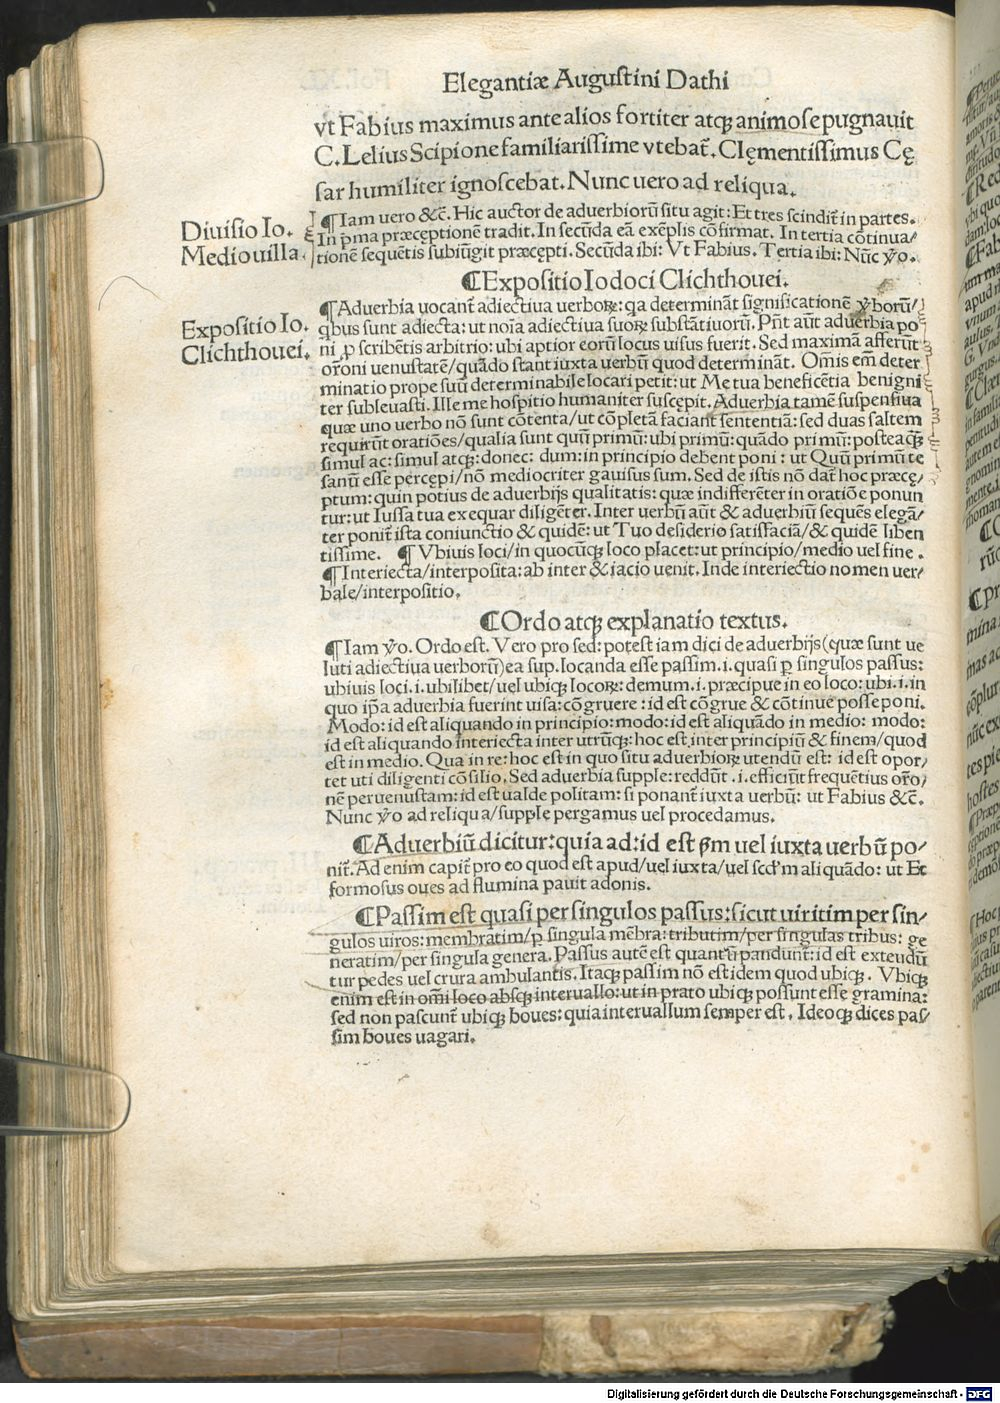 Elegantiæ Augustini Dathi
vt Fabius maximus ante alios fortiter atqꝫ animose pugnauit
C. Lelius Scipione familiarissime vtebat̃. Clęmentissimus Cę
sar humiliter ignoscebat. Nunc uero ad reliqua.
Diuisio Io.
Mediouilla.
¶Iam uero &c̃. Hic auctor de aduerbiorũ situ agit: Et tres scindit̃ in partes.
In p̃ma præceptionẽ tradit. In secũda eã exẽplis cõfirmat. In tertia cõtinua/
tionẽ sequẽtis subiũgit præcepti. Secũda ibi: Vt Fabius. Tertia ibi: Nũc ỹo.
¶Expositio Iodoci Clichthouei.
Expositio Io.
Clichthouei.
¶Aduerbia uocant̃ adiectiua uerboꝝ: qa determinãt significationẽ ỹborũ/
qbus sunt adiecta: ut noĩa adiectiua suoꝝ substãtiuorũ. Pñt aũt aduerbia po
ni ꝓ scribẽtis arbitrio: ubi aptior eorũ locus uisus fuerit. Sed maximã afferũt
orõni uenustatẽ/quãdo stant iuxta uerbũ quod determinãt. Om̃is em̃ deter
minatio prope suũ determinabile locari petit: ut Me tua beneficẽtia benigni
ter subleuasti. Ille me hospitio humaniter suscepit. Aduerbia tamẽ suspensiua
quæ uno uerbo nõ sunt cõtenta/ut cõpletã faciant sententiã: sed duas saltem
requirũt oratiões/qualia sunt quũ primũ: ubi primũ: quãdo primũ: posteaqꝫ̃
simul ac: simul atqꝫ: donec: dum: in principio debent poni: ut Quũ primũ te
sanũ esse percępi/nõ mediocriter gauisus sum. Sed de istis nõ dat̃ hoc præcę/
ptum: quin potius de aduerbijs qualitatis: quæ indifferẽter in oratiõe ponun
tur: ut Iussa tua exequar diligẽter. Inter uerbũ aũt & aduerbiũ sequẽs elegã/
ter ponit̃ ista coniunctio & quidẽ: ut Tuo desiderio satisfaciã/& quidẽ liben
tissime. ¶Vbiuis loci/in quocũqꝫ loco placet: ut principio/medio uel fine.
¶Interiecta/interposita: ab inter & iacio uenit. Inde interiectio nomen uer/
bale/interpositio.
¶Ordo atqꝫ explanatio textus.
¶Iam ỹo. Ordo est. Vero pro sed: potest iam dici de aduerbijs (quæ sunt ue
luti adiectiua uerborũ) ea sup. locanda esse passim .i. quasi ꝑ singulos passus:
ubiuis loci .i. ubilibet/uel ubiqꝫ locoꝝ: demum .i. præcipue in eo loco: ubi .i. in
quo ip̃a aduerbia fuerint uisa: cõgruere: id est cõgrue & cõtinue posse poni.
Modo: id est aliquando in principio: modo: id est aliquãdo in medio: modo:
id est aliquando interiecta inter utrũqꝫ: hoc est inter principiũ & finem/quod
est in medio. Qua in re: hoc est in quo situ aduerbioꝝ utendũ est: id est opor/
tet uti diligenti cõsilio. Sed aduerbia supple: reddũt .i. efficiũt frequẽtius orõ/
nẽ peruenustam: id est ualde politam: si ponant̃ iuxta uerbũ: ut Fabius &c̃.
Nunc ỹo ad reliqua/supple pergamus uel procedamus.
¶Aduerbiũ dicitur: quia ad: id est ꝓm uel iuxta uerbũ po/
nit̃. Ad enim capit̃ pro eo quod est apud/uel iuxta/uel scďm aliquãdo: ut Et
formosus oues ad flumina pauit adonis.
¶Passim est quasi per singulos passus: sicut uiritim per sin/
gulos uiros: membratim/ꝑ singula mẽbra: tributim/per singulas tribus: ge
neratim/per singula genera. Passus autẽ est quantũ pandunt̃: id est extendũ
tur pedes uel crura ambulantis. Itaqꝫ passim nõ est idem quod ubiqꝫ. Vbiqꝫ
enim est in om̃i loco absqꝫ interuallo: ut in prato ubiqꝫ possunt esse gramina:
sed non pascunt̃ ubiqꝫ boues: quia interuallum semper est. Ideoqꝫ dices pas/
sim boues uagari.
Digitalisierung gefördert durch die Deutsche Forschungsgemeinschaft - DFG